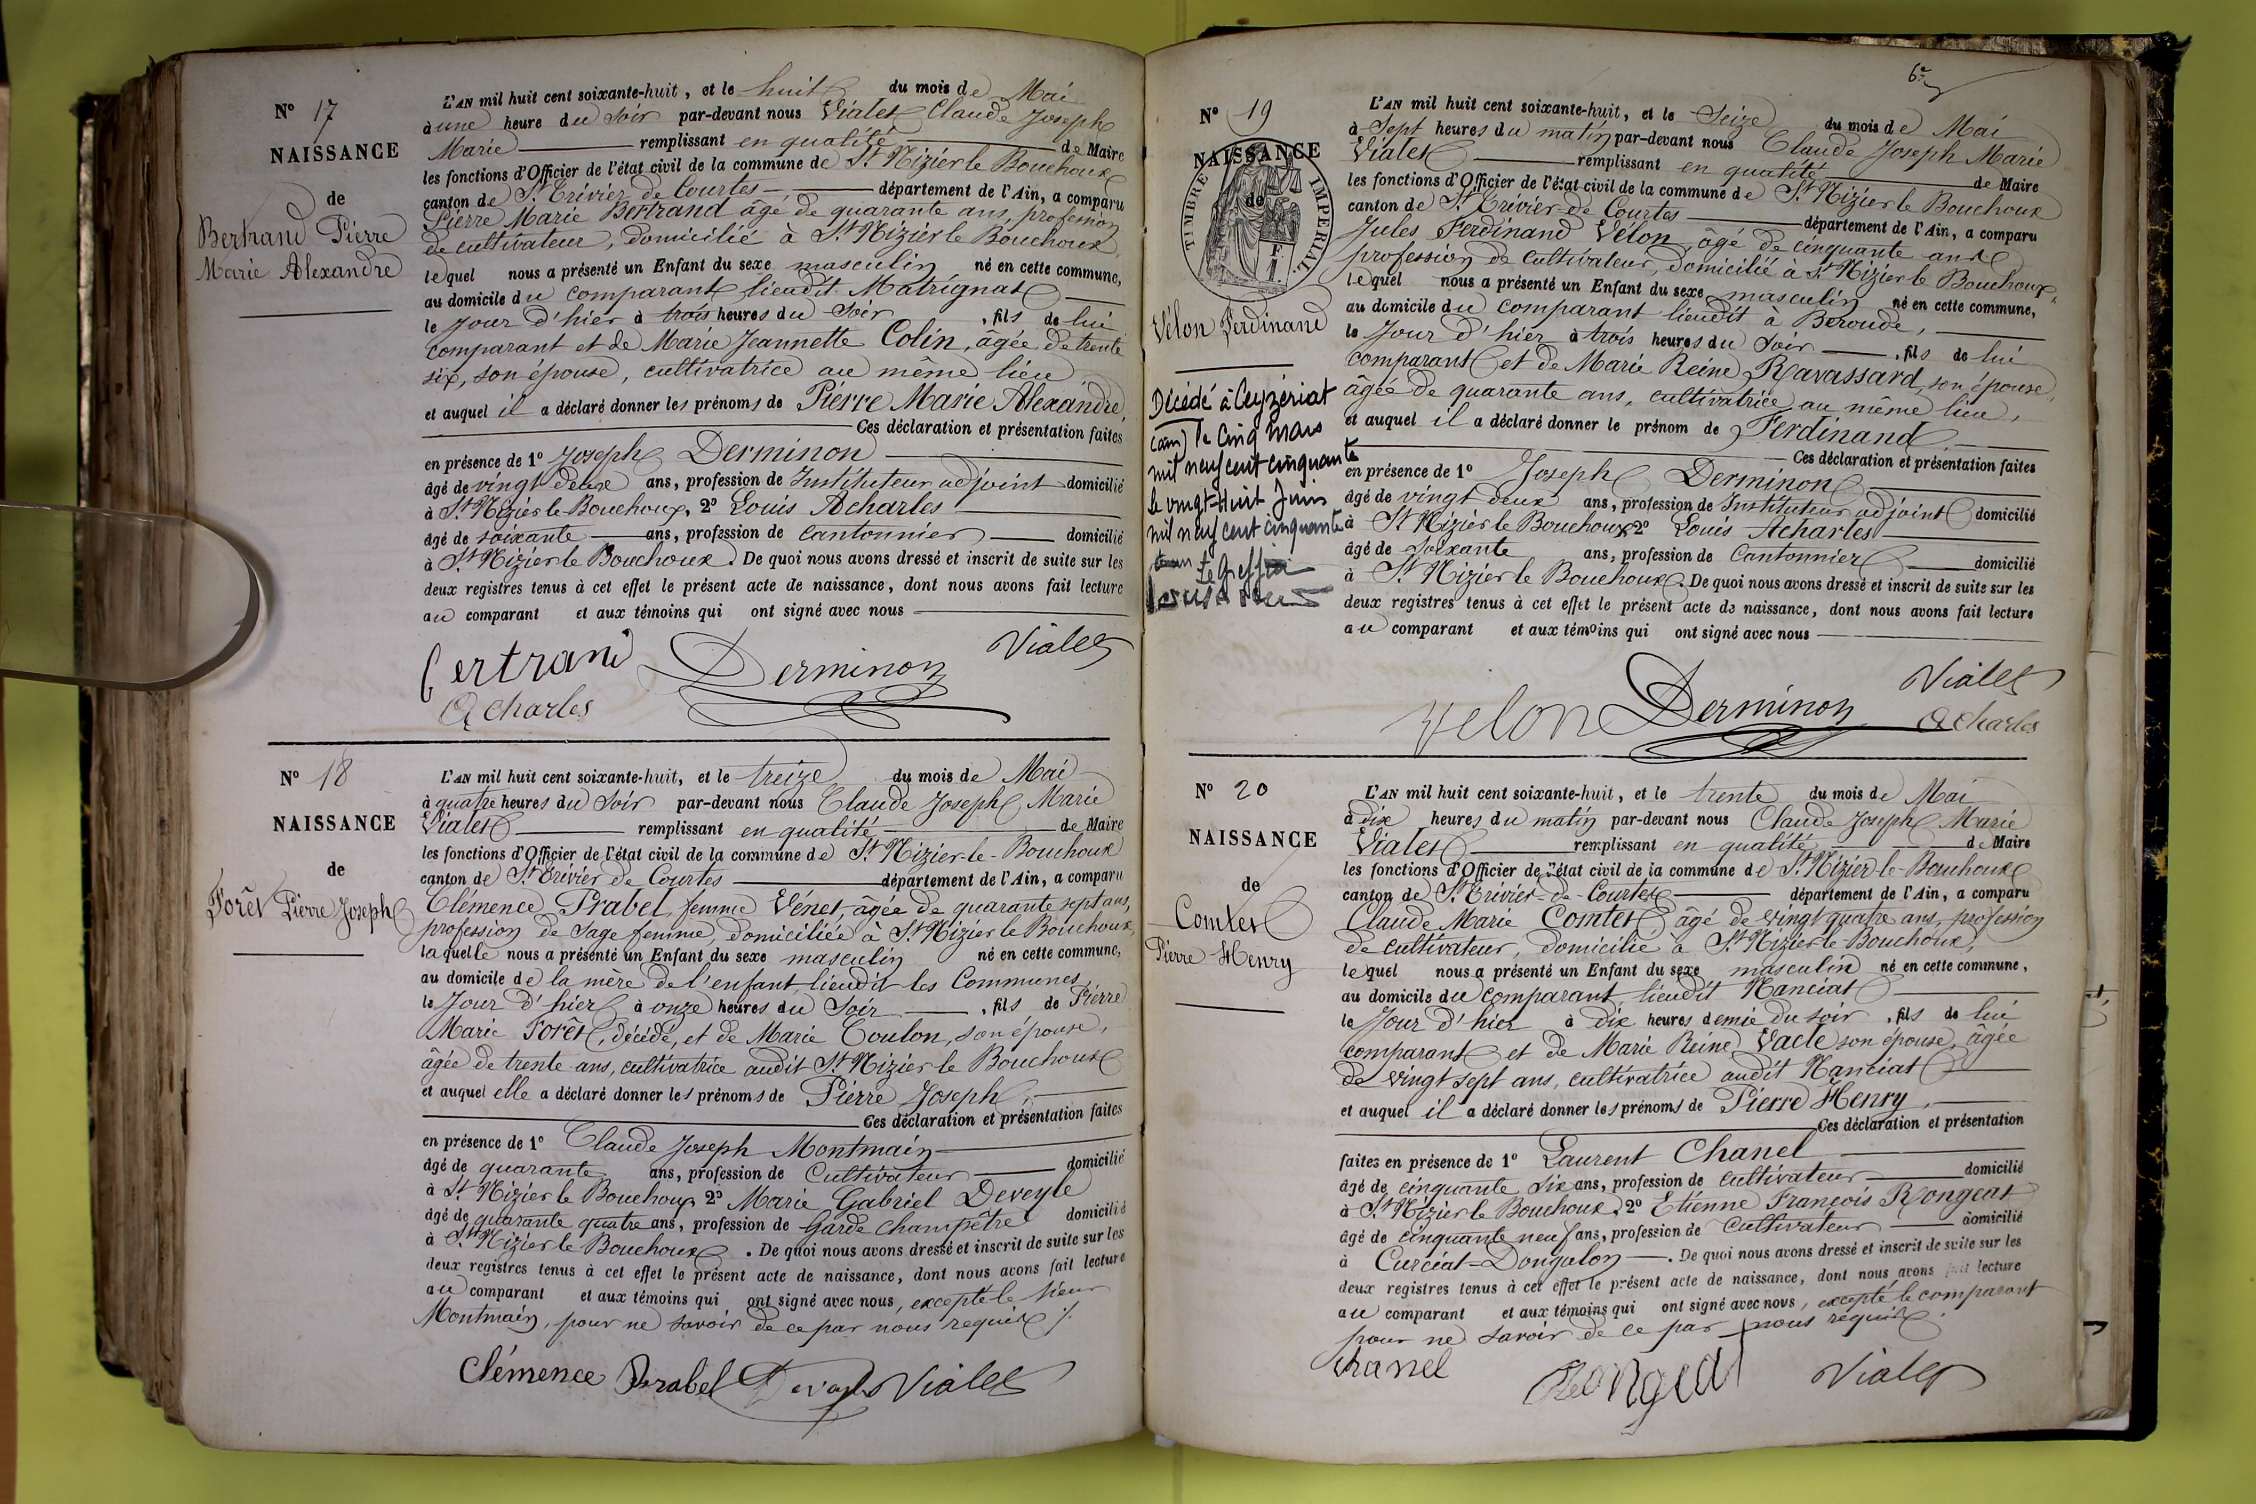 N° 17
NAISSANCE
de
Bertrand Pierre
Marie Alexandre
L'AN mil huit cent soixante-huit, et le huit du mois de Mai
à une heure du Soir par-devant nous Vialet Claude Joseph
Marie remplissant en qualité de Maire
les fonctions d'Officier de l'état civil de la commune de St Nizier le Bouchoux
canton de St Trivier de Courtes département de l'Ain, a comparu
Pierre Marie Bertrand âgé de quarante ans, profession
de cultivateur, domicilié à St Nizier le Bouchoux,
lequel nous a présenté un Enfant du sexe masculin né en cette commune,
au domicile du comparant lieudit Matrignat
le Jour d'hier à trois heures du Soir, fils de lui
comparant et de Marie Jeannette Colin, âgée de trente
six, son épouse, cultivatrice au même lieu,
et auquel il a déclaré donner les prénoms de Pierre Marie Alexandre,
Ces déclaration et présentation faites
en présence de 1° Joseph Derminon
âgé de vingt deux ans, profession de Instituteur adjoint domicilié
à St Nizier le Bouchoux, 2° Louis Acharles
âgé de soixante ans, profession de cantonnier domicilié
à St Nizier le Bouchoux. De quoi nous avons dressé et inscrit de suite sur les
deux registres tenus à cet effet le présent acte de naissance, dont nous avons fait lecture
au comparant et aux témoins qui ont signé avec nous
Bertrand Derminon Vialet
Acharles
N° 18
NAISSANCE
de
Forêt Pierre Joseph
L'AN mil huit cent soixante-huit, et le treize du mois de Mai
à quatre heures du Soir par-devant nous Claude Joseph Marie
Vialet remplissant en qualité de Maire
les fonctions d'Officier de l'état civil de la commune de St Nizier-le-Bouchoux
canton de St Trivier de Courtes département de l'Ain, a comparu
Clémence Prabel, femme Vénet, âgée de quarante sept ans,
profession de Sage femme, domiciliée à St Nizier le Bouchoux,
laquelle nous a présenté un Enfant du sexe masculin né en cette commune,
au domicile de la mère de l'enfant, lieudit les Communes
le Jour d'hier à onze heures du Soir, fils de Pierre
Marie Forêt, décédé, et de Marie Coulon, son épouse,
âgée de trente ans, cultivatrice audit St Nizier le Bouchoux
et auquel elle a déclaré donner les prénoms de Pierre Joseph,
Ces déclaration et présentation faites
en présence de 1° Claude Joseph Montmain
âgé de quarante ans, profession de Cultivateur domicilié
à St Nizier le Bouchoux 2° Marie Gabriel Deveyle
âgé de quarante quatre ans, profession de Garde champêtre domicilié
à St Nizier le Bouchoux. De quoi nous avons dressé et inscrit de suite sur les
deux registres tenus à cet effet le présent acte de naissance, dont nous avons fait lecture
au comparant et aux témoins qui ont signé avec nous, excepté le sieur
Montmain, pour ne savoir de ce par nous requis ./.
Clémence Prabel Deveyle Vialet
6e
N° 19
NAISSANCE
de
TIMBRE IMPERIAL
F.
Vélon Ferdinand
Décédé à Ceyzériat
(ain) le Cinq Mars
mil neuf cent cinquante
le vingt-huit Juin
mil neuf cent cinquante
Le Greffier
L'AN mil huit cent soixante-huit, et le Seize du mois de Mai
à Sept heures du matin par-devant nous Claude Joseph Marie
Vialet remplissant en qualité de Maire
les fonctions d'Officier de l'état civil de la commune de St Nizier le Bouchoux
canton de St Trivier-de Courtes département de l'Ain, a comparu
Jules Ferdinand Vélon, âgé de cinquante ans
profession de cultivateur, domicilié à St Nizier le Bouchoux,
lequel nous a présenté un Enfant du sexe masculin né en cette commune,
au domicile du comparant lieudit à Beroude,
le Jour d'hier à trois heures du Soir, fils de lui
comparant et de Marie Reine Ravassard, son épouse,
âgée de quarante ans, cultivatrice au même lieu,
et auquel il a déclaré donner le prénom de Ferdinand
Ces déclaration et présentation faites
en présence de 1° Joseph Derminon
âgé de vingt deux ans, profession de Instituteur adjoint domicilié
à St Nizier le Bouchoux 2° Louis Acharles
âgé de soixante ans, profession de Cantonnier domicilié
à St Nizier le Bouchoux. De quoi nous avons dressé et inscrit de suite sur les
deux registres tenus à cet effet le présent acte de naissance, dont nous avons fait lecture
au comparant et aux témoins qui ont signé avec nous
Velon Derminon Vialet
Acharles
N° 20
NAISSANCE
de
Comtet
Pierre Henry
L'AN mil huit cent soixante-huit, et le trente du mois de Mai
à dix heures du matin par-devant nous Claude Joseph Marie
Vialet remplissant en qualité de Maire
les fonctions d'Officier de l'état civil de la commune de St Nizier-le-Bouchoux
canton de St Trivier-de-Courtes département de l'Ain, a comparu
Claude Marie Comtet, âgé de vingt quatre ans, profession
de cultivateur, domicilié à St Nizier le Bouchoux,
lequel nous a présenté un Enfant du sexe masculin né en cette commune,
au domicile du comparant, lieudit Nanciat
le Jour d'hier à dix heures demie du soir, fils de lui
comparant et de Marie Reine Vacle son épouse, âgée
de vingt sept ans, cultivatrice audit Nanciat
et auquel il a déclaré donner les prénoms de Pierre Henry,
Ces déclaration et présentation
faites en présence de 1° Laurent Chanel
âgé de cinquante six ans, profession de cultivateur domicilié
à St Nizier le Bouchoux, 2° Etienne François Rongeat
âgé de cinquante neuf ans, profession de Cultivateur domicilié
à Curciat=Dongalon. De quoi nous avons dressé et inscrit de suite sur les
deux registres tenus à cet effet le présent acte de naissance, dont nous avons fait lecture
au comparant et aux témoins qui ont signé avec nous, excepté le comparant
pour ne savoir de ce par nous requis.
chanel Rongeat Vialet